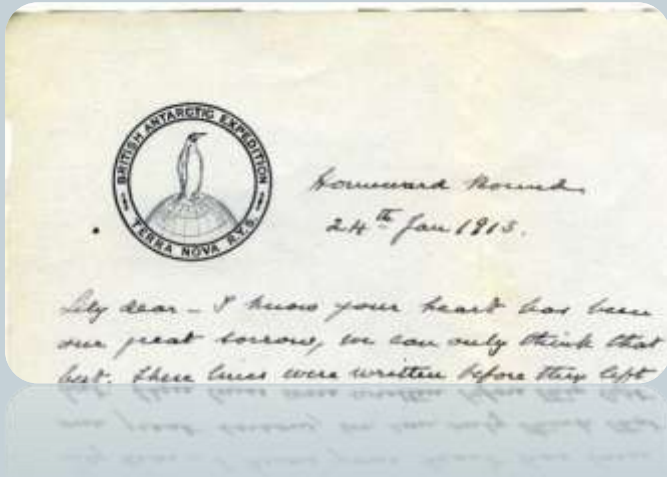 BRITISH ANTARCTIC EXPEDITION
TERRA NOVA R.Y.S.
Homeward Bound
24th Jan 1913.
Lily dear - I know your heart has been
our great sorrow, we can only think that
best. These lines were written before they left